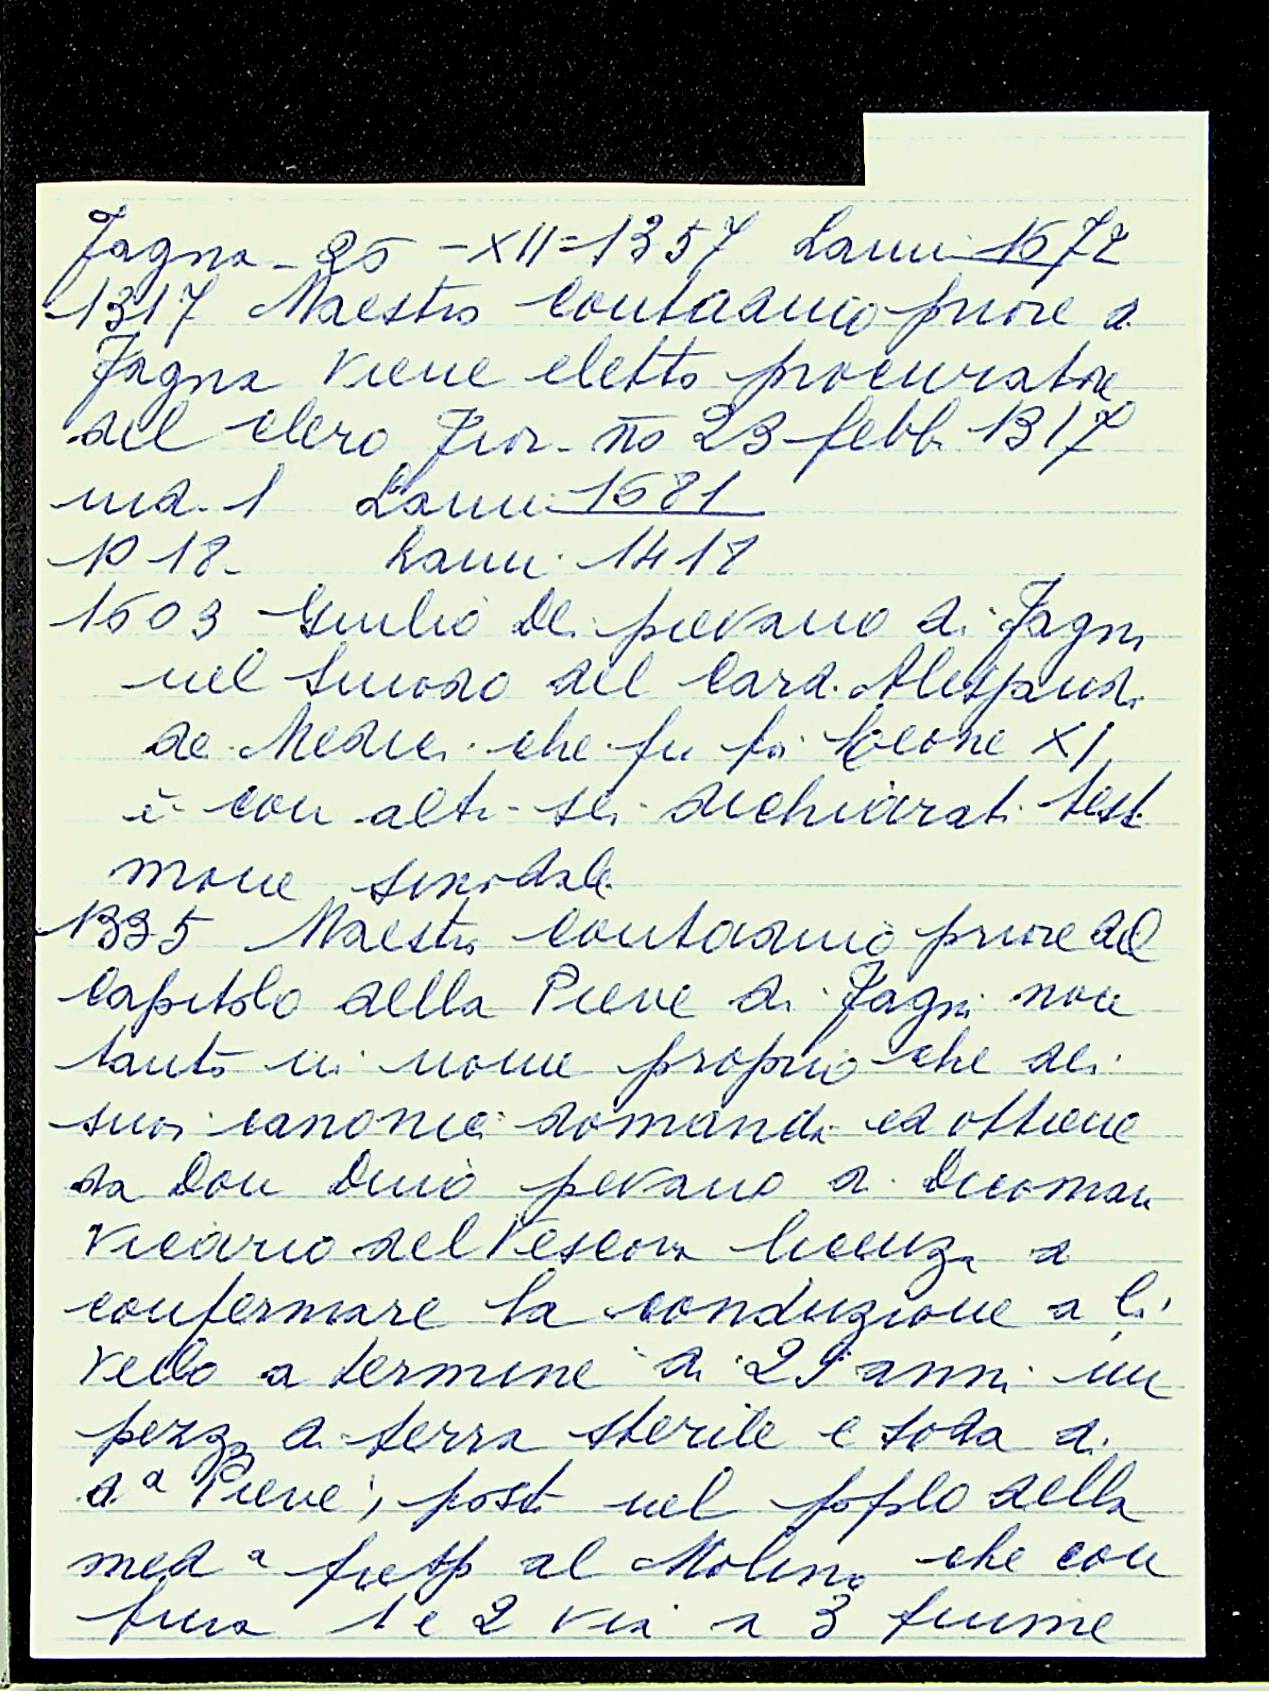 Fagna - 25 - XII = 1357 Lami 1672
1317 Maestro Contadino priore a
Fagna viene eletto procuratore
del clero Fior. no 23 febb. 1317
ind. 1 Lami 1681
1018 - Lami 1418
1603 Giulio De pievano di Fagna
nel sinodo del Card. Alessand.
de Medici che fu poi Leone XI
è con altri sei dichiarati testi
mone sinodale
1335 Maestro Contadino priore del
Capitolo della Pieve di Fagna non
tanto in nome proprio che dei
suoi canonici domanda ed ottiene
da Don Dino pievano di Dicoman
Vicario del Vescovo licenza a
confermare la conduzione a li
vello a termine di 29 anni un
pezzo di terra sterile e soda di
d.a Pieve, posto nel popolo della
med a al Molino che con
fina 1 e 2 via a 3 fiume